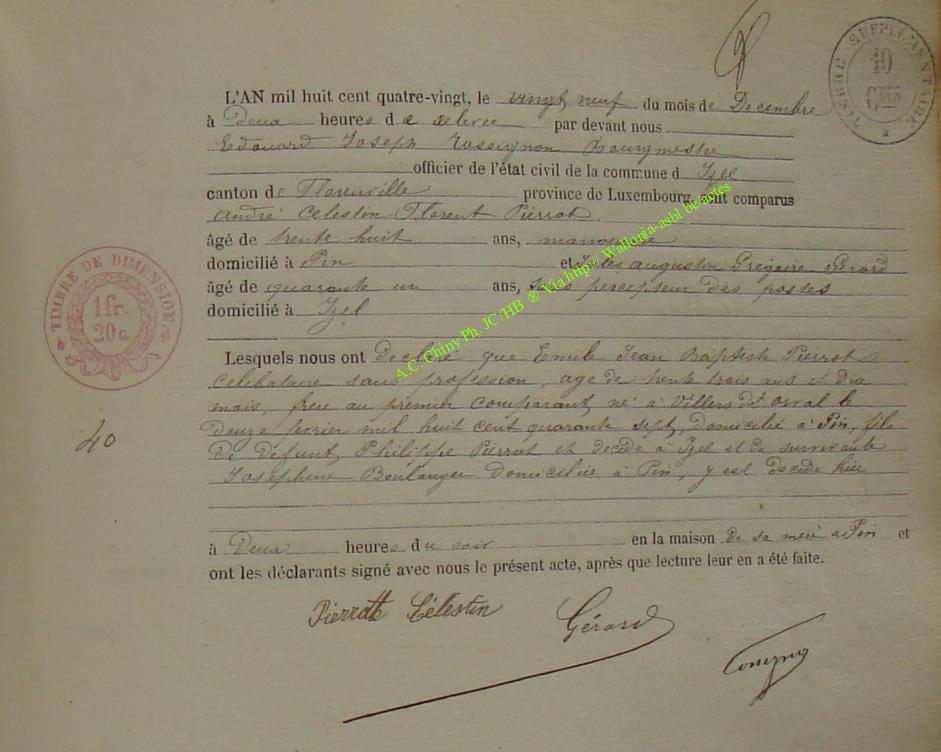 TIMBRE SUPPLÉMENTAIRE
10
CMES
L'AN mil huit cent quatre-vingt, le vingt neuf du mois de Decembre
à Deux heures d e relevée par devant nous
Edouard Joseph Rossignon Bourgmestre
officier de l'état civil de la commune d Izel
canton de Florenville province de Luxembourg, sont comparus
André Celestin Florent Pierrot
âgé de trente huit ans, manoeuvre
domicilié à Pin et Jules Augustin Grégoire Gérard
âgé de quarante un ans, percepteur des postes
domicilié à Izel
TIMBRE DE DIMENSION.
1 fr.
20 c.
Lesquels nous ont declaré que Emile Jean Baptiste Pierrot
celibataire sans profession, age de trente trois ans et dix
mois, frere au premier comparant, né à Villers dt Orval le
douze fevrier mil huit cent quarante sept, domicilié à Pin, fils
de defunt Philippe Pierrot et decede à Izel et de survivante
Josephine Boulanger domiciliée à Pin, y est decede hier
40
à Deux heures du soir en la maison de sa mere a Pin et
ont les déclarants signé avec nous le présent acte, après que lecture leur en a été faite.
Pierrot Célestin
Gérard
A.C. Chiny Ph. JC/HB ® Via http://Wallonia-asbl.be.actes